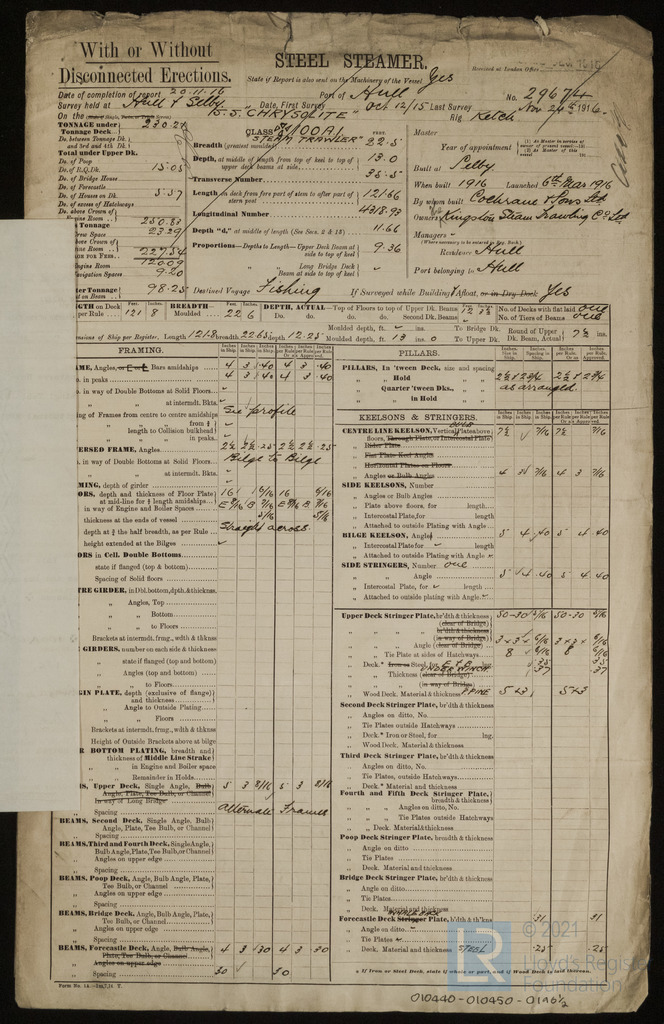 With or Without
Disconnected Erections.
STEEL STEAMER.
Received at London Office
State if Report is also sent on the Machinery of the Vessel Yes
Date of completion of report 20.11.16 Port of Hull No. 29674
Survey held at Hull & Selby Date, First Survey Oct 12/15 Last Survey Nov 20th 1916
On the S.S. "CHRYSOLITE" Rig Ketch
TONNAGE under Tonnage Deck 230.21
Do. between Tonnage Dk. and 3rd and 4th Dk.
Total under Upper Dk.
Do. of Poop
Do. of R.Q. Dk. 15.05
Do. of Bridge House
Do. of Forecastle
Do. of Houses on Dk. 5.57
Do. of excess of Hatchways
Do. above Crown of
Engine Room
Tonnage 250.83
Crew Space 23.29
above Crown of
ine Room
227.54
ngine Room 120.09
igation Spaces 9.20
ter Tonnage 98.25
CLASS 100A1
"STEAM TRAWLER" FEET.
Breadth (greatest moulded) 22.5
Depth, at middle of length from top of keel to top of upper deck beams at side 13.0
Transverse Number 35.5
Length on deck from fore part of stem to after part of stern post 121.66
Longitudinal Number 4318.93
Depth "d," at middle of length (See Secs. 2 & 13) 11.66
Proportions—Depths to Length—Upper Deck Beam at side to top of keel 9.36
" " Long Bridge Deck Beam at side to top of keel
Master
Year of appointment
(1) As Master in service of owner of present vessel—19
(2) As Master of this vessel 19
Built at Selby
When built 1916 Launched 6th Mar 1916
By whom built Cochrane & Sons Ltd
Owners Kingston Steam Trawling Co Ltd
Managers
(Where necessary to be entered in Reg. Book)
Residence Hull
Port belonging to Hull
Destined Voyage Fishing If Surveyed while Building, Afloat, or in Dry Dock Yes
NGTH on Deck per Rule 121 8 BREADTH—Moulded 22 6 DEPTH, ACTUAL—Top of Floors to top of Upper Dk. Beams
Do. Do. Second Dk. Beams
No. of Decks with flat laid one
No. of Tiers of Beams one
ensions of Ship per Register, Length 121.8 breadth 22.65 depth 12.25 Moulded depth, ft. ins. To Bridge Dk.
Moulded depth, ft. 13 0 ins. To Upper Dk.
Round of Upper Dk. Beam, Actual 7½ ins.
FRAMING.
AME, Angles, Bars amidships 4 3 .40 4 3 .40
o. in peaks 4 3 .40 4 3 .40
o. in way of Double Bottoms at Solid Floors
" " at intermdt. Bkts.
ing of Frames from centre to centre amidships See profile
" length to Collision bulkhead
" in peaks
VERSED FRAME, Angles 2½ 2½ .25 2½ 2½ .25
o. in way of Double Bottoms at Solid Floors Bilge to Bilge
" " at intermdt. Bkts.
MING, depth of girder
ORS, depth and thickness of Floor Plate at mid-line for ½ length amidships 16 6/16 16 6/16
in way of Engine and Boiler Spaces
thickness at the ends of vessel 5/16 5/16
depth at ¾ the half breadth, as per Rule Straight across
height extended at the Bilges
ORS in Cell. Double Bottoms
state if flanged (top & bottom)
Spacing of Solid floors
TRE GIRDER, in Dbl. bottom, dpth. & thicknss.
" Angles, Top
" " Bottom
" " to Floors
Brackets at intermdt. frmg., wdth & thknss
GIRDERS, number on each side & thickness
" state if flanged (top and bottom)
" Angles (top and bottom)
" to Floors
GIN PLATE, depth (exclusive of flange) and thickness
" Angle to Outside Plating
" " Floors
Brackets at intermdt. frmg., wdth & thkns
Height of Outside Brackets above at bilge
R BOTTOM PLATING, breadth and thickness of Middle Line Strake
" in Engine and Boiler space
" Remainder in Holds
S, Upper Deck, Single Angle, Bulb Angle, Plate, Tee Bulb, or Channel 5 3 8/16 5 3 8/16
in way of Long Bridge
Spacing Alternate Frames
BEAMS, Second Deck, Single Angle, Bulb Angle, Plate, Tee Bulb, or Channel
Spacing
BEAMS, Third and Fourth Deck, Single Angle, Bulb Angle, Plate, Tee Bulb, or Channel
Angles on upper edge
Spacing
BEAMS, Poop Deck, Angle, Bulb Angle, Plate, Tee Bulb, or Channel
Angles on upper edge
Spacing
BEAMS, Bridge Deck, Angle, Bulb Angle, Plate, Tee Bulb, or Channel
Angles on upper edge
Spacing
BEAMS, Forecastle Deck, Angle, Bulb Angle, Plate, Tee Bulb, or Channel 4 3 .30 4 3 .30
Angles on upper edge
Spacing 30 30
Form No. 1A.
PILLARS.
PILLARS, In 'tween Deck, size and spacing
" " Hold
" Quarter 'tween Dks., " as arranged.
" in Hold
KEELSONS & STRINGERS.
CENTRE LINE KEELSON, Vertical Plate above floors, Through Plate, or Intercostal Plate 7½ 7/16 7½ 7/16
" Rider Plate
" Flat Plate Keel Angles
" Horizontal Plates on Floors
" Angles or Bulb Angles 4 3 7/16 4 3 7/16
SIDE KEELSONS, Number
" Angles or Bulb Angles
" Plate above floors, for length
" Intercostal Plate, for length
" Attached to outside Plating with Angle
BILGE KEELSON, Angles 5 4 .40 5 4 .40
" Intercostal Plate for length
" Attached to outside Plating with Angle
SIDE STRINGERS, Number one
" Angle 5 4 .40 5 4 .40
" Intercostal Plate, for length
" Attached to outside plating with Angle
Upper Deck Stringer Plate, br'dth & thickness (clear of Bridge) 50-30 50-30
" br'dth & thickness (in way of Bridge)
" Angle (clear of Bridge) 3 x 3 x 6/16 3 x 3 x 6/16
" Tie Plate at sides of Hatchways 8 8
" Deck. Iron or Steel, for lng. .35 .35
" UNDER WINCH
Thickness (clear of Bridge) .37 .37
" (in way of Bridge)
" Wood Deck. Material & thickness P. PINE 5 x 3 5 x 3
Second Deck Stringer Plate, br'dth & thickness
" Angles on ditto, No.
" Tie Plates outside Hatchways
" Deck.* Iron or Steel, for lng.
" Wood Deck. Material & thickness
Third Deck Stringer Plate, br'dth & thickness
" Angles on ditto, No.
" Tie Plates, outside Hatchways
" Deck.* Material and thickness
Fourth and Fifth Deck Stringer Plate, breadth & thickness
" " Angles on ditto, No.
" " Tie Plates outside Hatchways
" " Deck. Material & thickness
Poop Deck Stringer Plate, breadth & thickness
" Angle on ditto
" Tie Plates
" Deck. Material and thickness
Bridge Deck Stringer Plate, br'dth & thickness
" Angle on ditto
" Tie Plates
" Deck. Material and thickness
Forecastle Deck Stringer Plate, b'dth & th'kns .31 .31
" Angle on ditto
" Tie Plates
" Deck. Material and thickness STEEL .25 .25
* If Iron or Steel Deck, state if whole or part, and if Wood Deck is laid thereon.
© 2021
LR
Lloyd's Register
Foundation
010440-010450-0196½